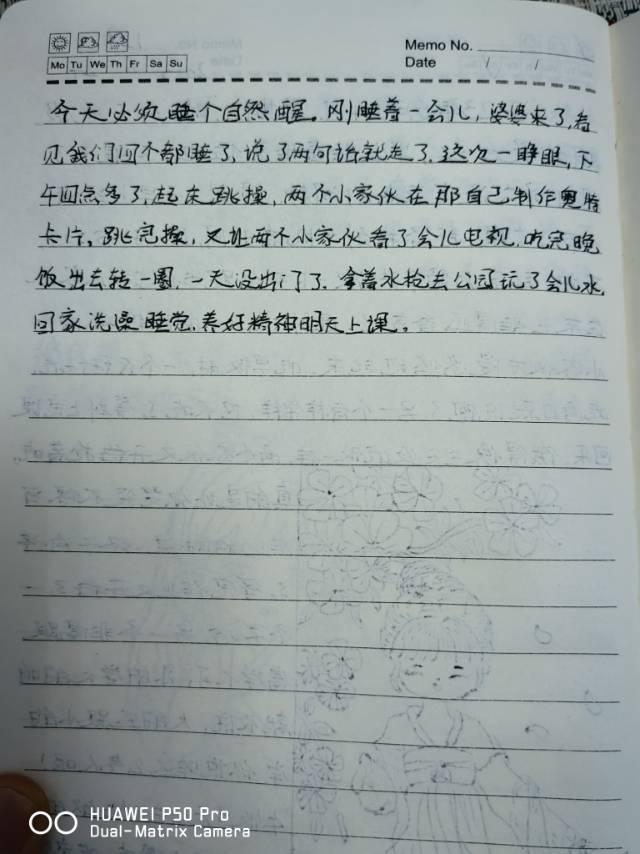 Memo No.
Mo Tu We Th Fr Sa Su
Date / /
今天必须睡个自然醒。刚睡着一会儿，婆婆来了，看
见我们四个都睡了，说了两句话就走了，这次一睁眼，下
午四点多了，起床跳操，两个小家伙在那自己制作奥特
卡片，跳完操，又让两个小家伙看了会儿电视，吃完晚
饭出去转一圈，一天没出门了，拿着水枪去公园玩了会儿水，
回家洗澡睡觉，养好精神明天上课。
HUAWEI P50 Pro
Dual-Matrix Camera